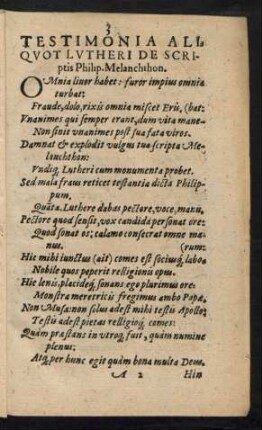 3
TESTIMONIA ALI-
QVOT LVTHERI DE SCRI-
ptis Philip. Melanchthon.
OMnia livor habet: furor impius omnia
turbat:
Fraude, dolo, rixis omnia miscet Eris, (hat:
Vnanimes qui semper erant, dum vita mane-
Non sinit vnanimes post sua fata viros.
Damnat & explodit vulgus tua scripta Me-
lanchthon:
Vndiq; Lutheri cum monumenta probet.
Sed mala fraus reticet testantia dicta Philip-
pum,
Quãta Luthere dabas pectore, voce, manu.
Pectore quod sensit, vox candida personat ore:
Quod sonat os; calamo consecrat omne ma-
nus. (rum:
Hic mihi iunctus (ait) comes est sociusq; labo-
Nobile quos peperit relligionis opus.
Hic lenis, placideq; sonans ego plurimus ore:
Monstra meretricis fregimus ambo Papæ.
Non Musæ: non solus adest mihi testis Apollo:
Testis adest pietas relligioq; comes:
Quàm præstans in vtroq; fuit, quàm numine
plenus:
Atq; per hunc egit quàm bona multa Deus.
A 2 Hin